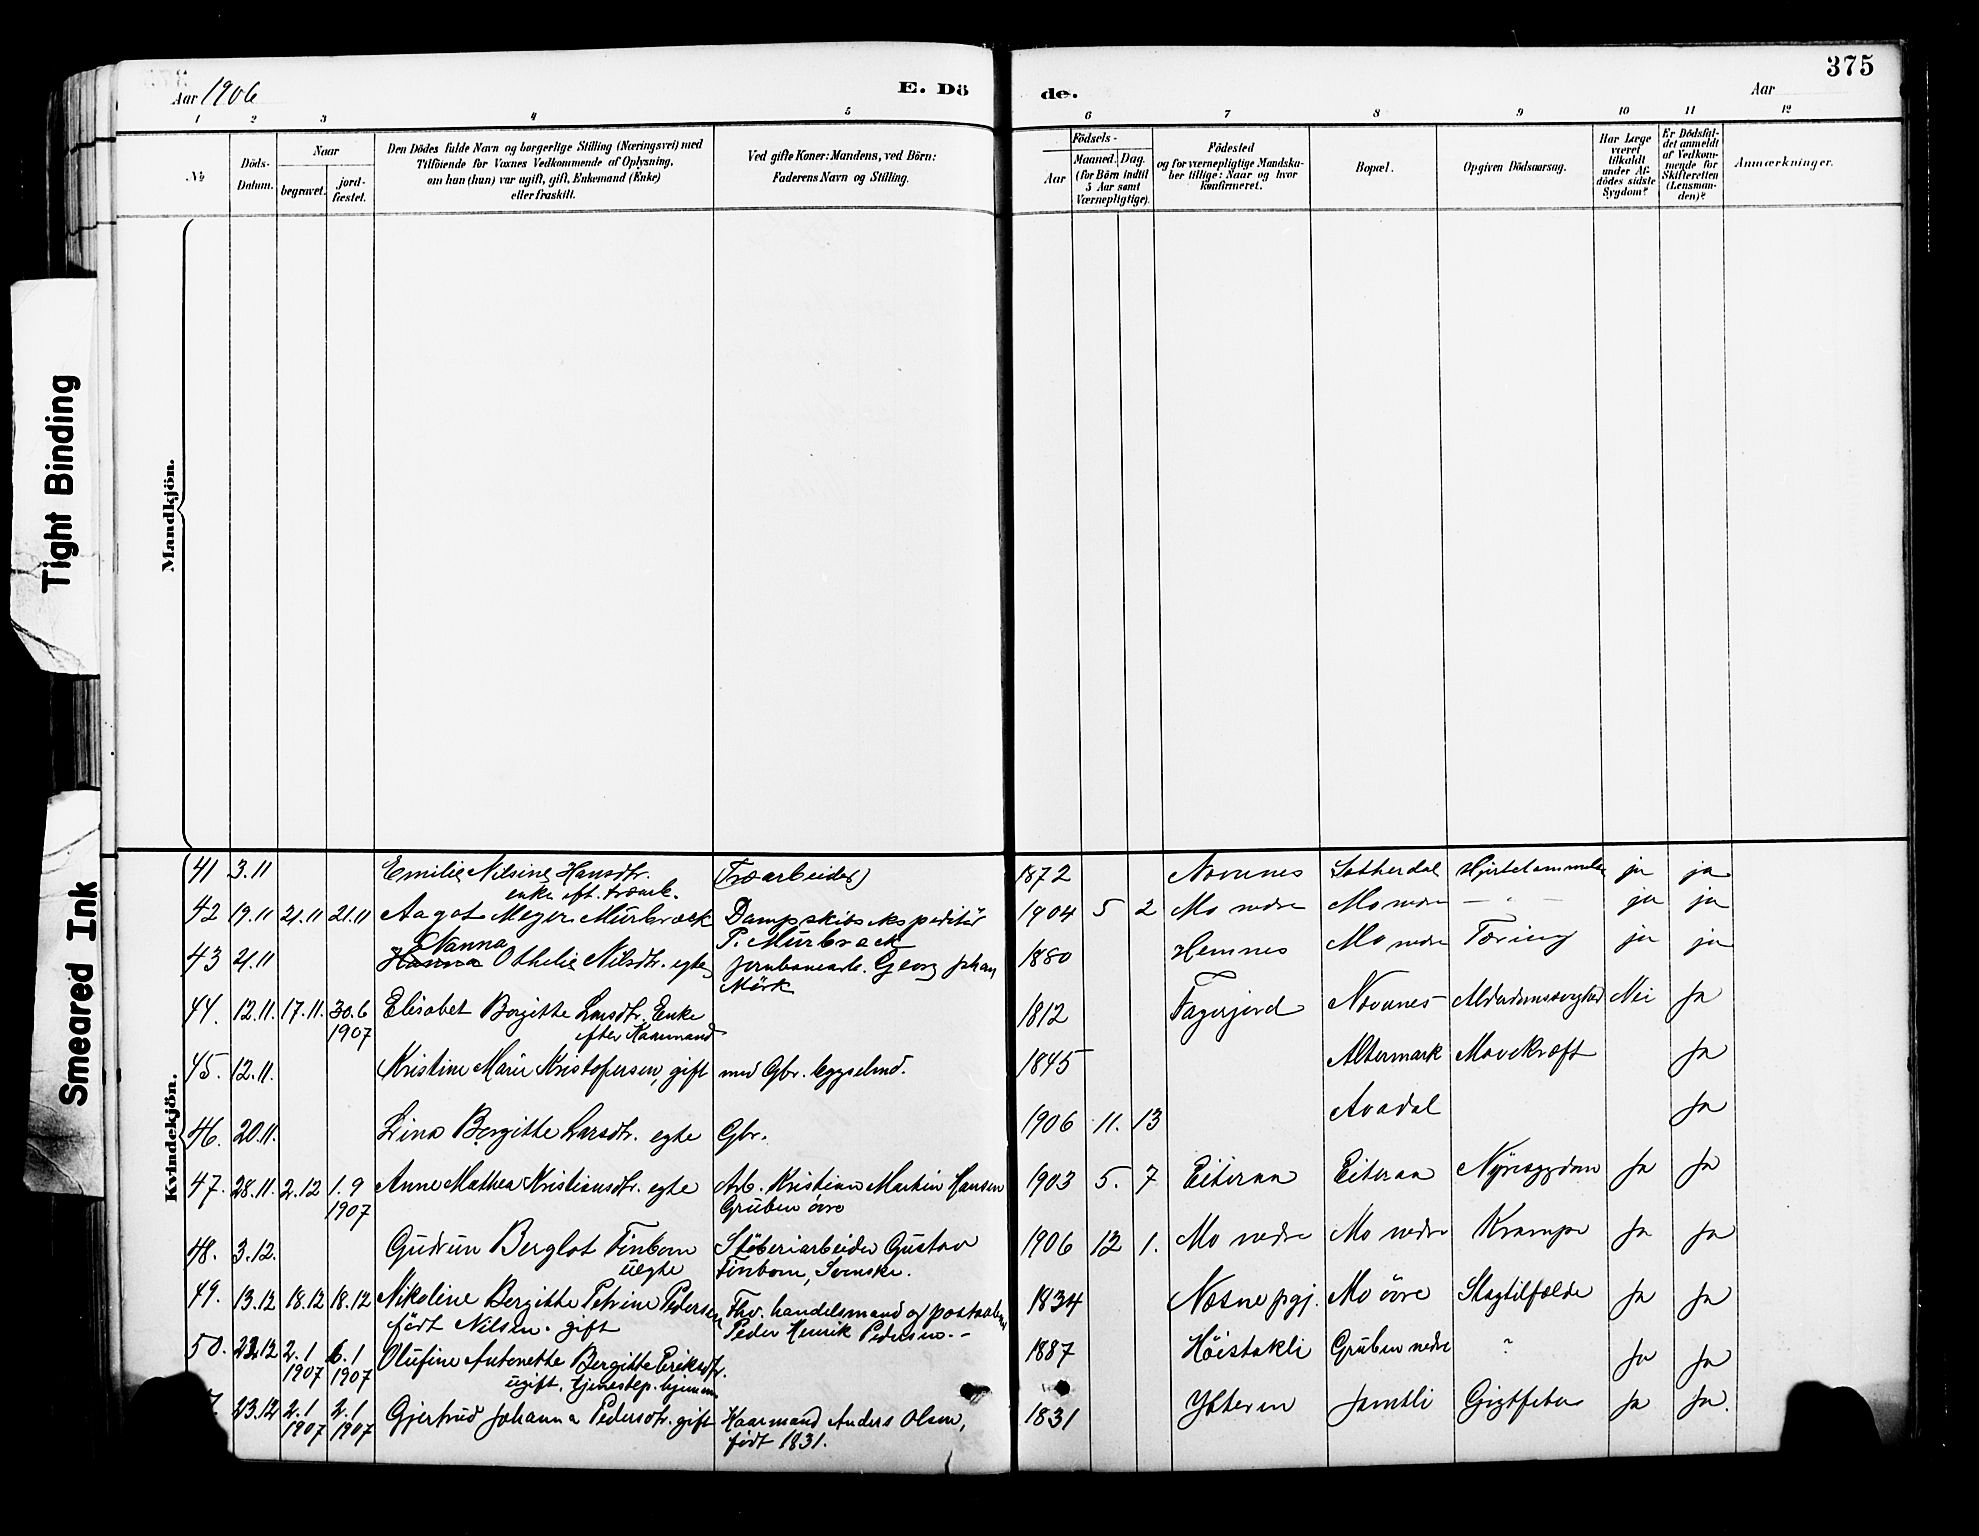 Tight Binding
Smeared Ink
Aar 1906
E. Dö
de.
Aar
375
1 2 3 4 5
6 7 8 9 10 11 12
No
Döds-
Datum.
Naar
begravet.
jord-
fæstet.
Den Dödes fulde Navn og borgerlige Stilling (Næringsvei) med
Tilföiende for Voxnes Vedkommende af Oplysning,
om han (hun) var ugift, gift, Enkemand (Enke)
eller fraskilt.
Ved gifte Koner: Mandens, ved Börn:
Faderens Navn og Stilling.
Födsels-
Aar
Maaned. Dag.
(for Börn indtil
5 Aar samt
Værnepligtige).
Födested
og for værnepligtige Mandska-
ber tillige: Naar og hvor
konfirmeret.
Bopæl.
Opgiven Dödsaarsag.
Har Læge
været
tilkaldt
under Af-
dödes sidste
Sygdom?
Er Dödsfal-
det anmeldt
af Vedkom-
mende for
Skifteretten
(Lensman-
den)?
Anmærkninger.
Mandkjön.
Kvindekjön.
41 3.11 Emilie Nilsine Hansdtr. (Træarbeider) 1872 ja ja
enke eft. træarb.
42 19.11 21.11 21.11 Aagot Meyer Mürbræck Dampskibsekspeditör 1904 5 2 Mo nedre Mo nedre - " - ja ja
P. Mürbræck
Nanna
43 21.11 Hanna Othelie Nilsdtr. egte jernbanearb. Georg Johan 1880 Hemnes Mo nedre Tæring ja ja
Mörk
44. 12.11. 17.11. 30.6 Elisabet Borgitte Larsdtr. Enke 1812 Fagerjord Alderdomssvaghed Nei Ja
1907 efter Kaarmand
45. 12.11. Kristine Marie Kristofersen, gift med Gbr. 1845 Altermark Mavekræft Ja
46. 20.11. Lina Bergitte Larsdtr. egte Gbr. 1906 11. 13 Avadal Ja
47. 28.11. 2.12 1.9 Anne Mathea Kristiansdtr. egte Arb. Kristian Martin Hansen 1903 5. 7 Eiteraa Eiteraa Nyresygdom Ja Ja
1907 Gruben övre
48. 3.12. Gudrun Berglot Finbom Stöberiarbeider Gustav 1906 12 1. Mo nedre Mo nedre Krampe Ja Ja
uegte Finbom, Svenske.
49. 13.12 18.12 18.12 Nikoline Bergitte Petrine Pedersen Fhv. handelsmand og postaabner 1834 Næsne pgj. Mo övre Slagtilfælde Ja Ja
född Nilsen. gift Peder Henrik Pedersen.-
50. 22.12 2.1 6.1 Olufine Antonette Bergitte Eriksdtr. 1887 Höistakli Gruben nedre ? Ja Ja
1907 1907 ugift, tjenestep. hjemme
23.12 2.1 2.1 Gjertrud Johanna Pedersdtr. gift Kaarmand Anders Olsen, 1831 Ytteren Jamtli Gigtfeber Ja Ja.
1907 1907 född 1831.